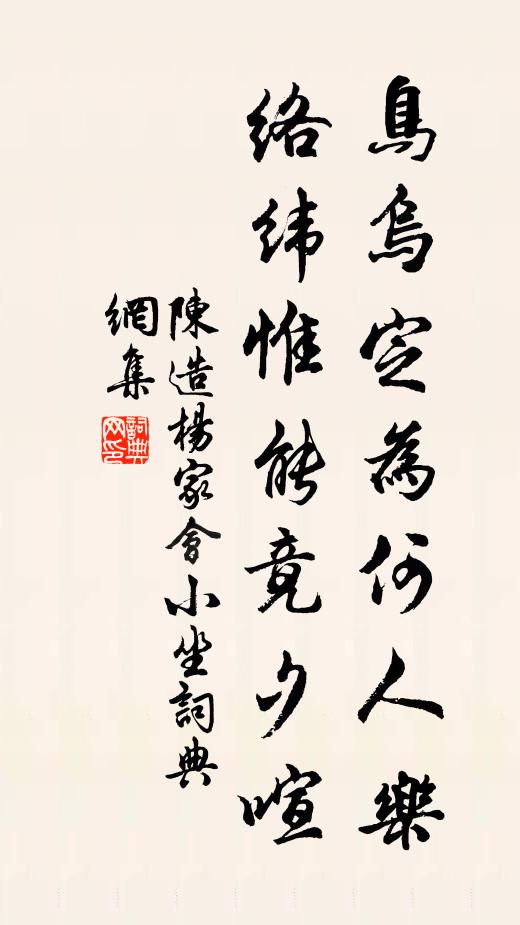 鳥烏定為何人樂
絡緯惟能竟夕喧
陳造楊家會小坐詞典
網集
詞典
网印